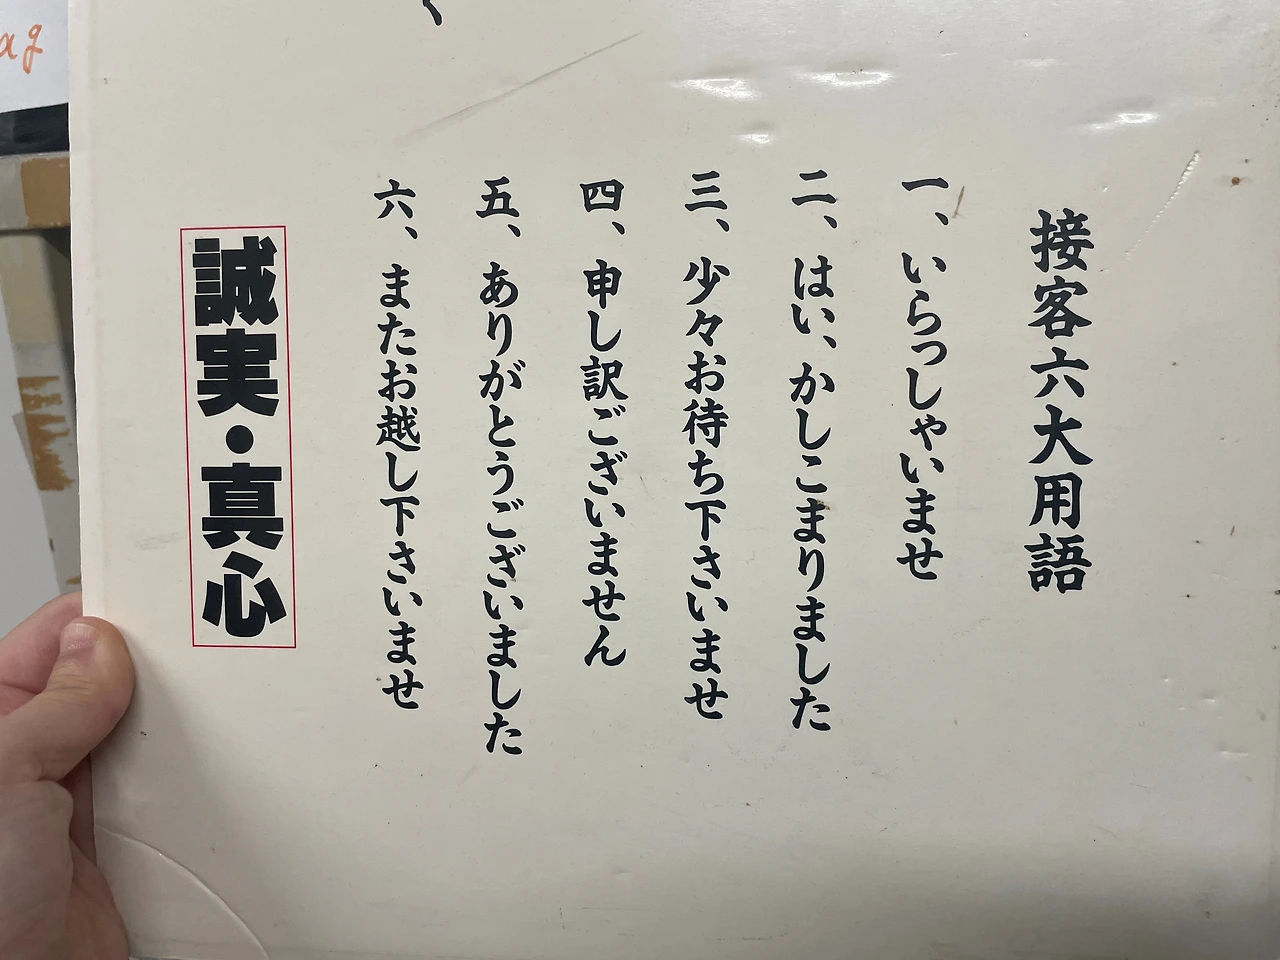 接客六大用語
一、いらっしゃいませ
二、はい、かしこまりました
三、少々お待ち下さいませ
四、申し訳ございません
五、ありがとうございました
六、またお越し下さいませ
誠実・真心
ag